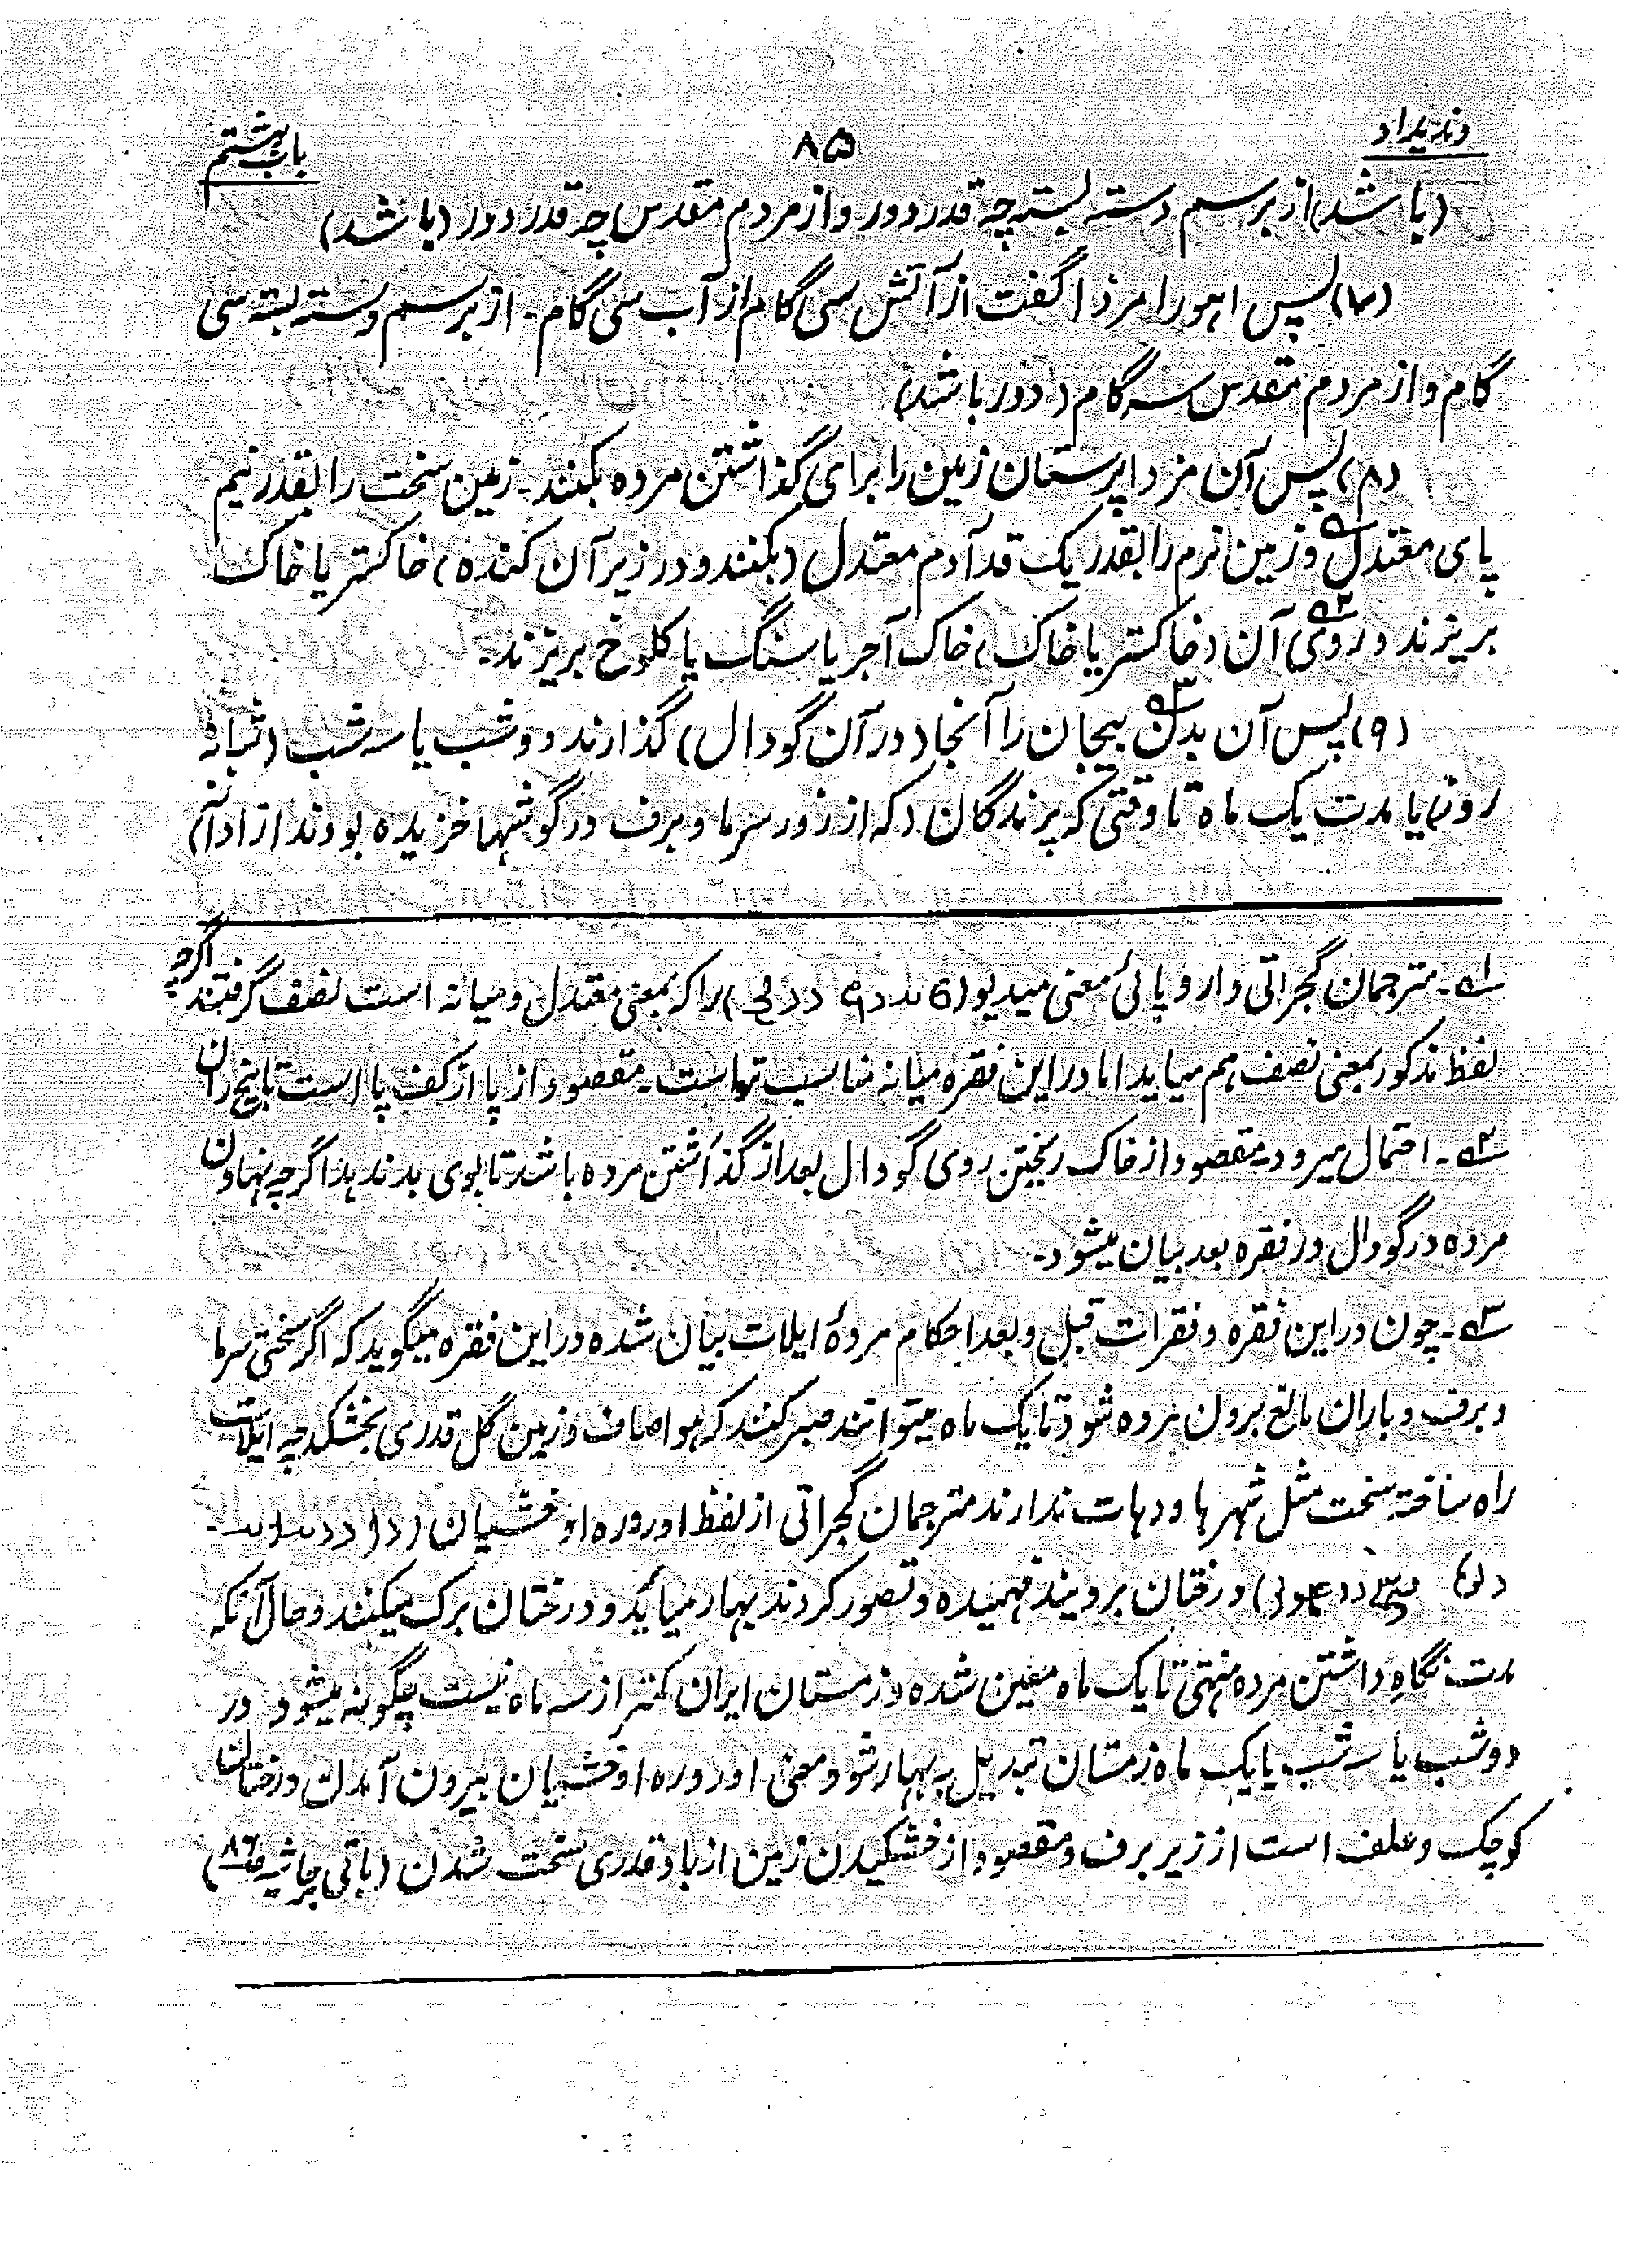 وندیداد
۸۵
باب هشتم
(باشد) از برسم دسته بسته چه قدر دور و از مردم مقدس چه قدر دور (باشد)
(۷) پس اهورا مرذا گفت از آتش سی گام از آب سی گام - از برسم دسته بسته سی
گام و از مردم مقدس سه گام (دور باشد)
(۸) پس آن مزداپرستان زمین را برای گذاشتن مرده بکنند - زمین سخت را بقدر نیم
پای معتدل ۱ و زمین نرم را بقدر یک قد آدم معتدل (بکنند و در زیر آن کنده) خاکستر یا خاک
بریزند و روی ۲ آن (خاکستر یا خاک) خاک آجر یا سنگ یا کلوخ بریزند -
(۹) پس آن بدن ۳ بیجان را آنجا (در آن گودال) گذارند دو شب یا سه شب (شبانه
روز) یا مدت یک ماه تا وقتی که پرندگان (که از زور سرما و برف در گوشها خزیده بودند از ادانه)
۱ - مترجمان گجراتی و اروپائی معنی میدیو () را که بمعنی معتدل و میانه است نصف گرفتند اگرچه
لفظ مذکور بمعنی نصف هم میاید اما در این فقره میانه مناسب تر است - مقصود از پا از کف پا است تا بیخ ران
۲ - احتمال میرود مقصود از خاک ریختن روی گودال بعد از گذاشتن مرده باشد تا بوی بد ندهد اگرچه نهادن
مرده در گودال در فقره بعد بیان میشود -
۳ - چون در این فقره و فقرات قبل و بعد احکام مردهٔ ایلات بیان شده در این فقره میگوید که اگر سختی سرما
و برف و باران مانع برون مرده شود تا یک ماه میتوانند صبر کنند که هوا صاف و زمین گل قدری بخشکد چه ایلات
راه ساخته سخت مثل شهرها و دهات ندارند مترجمان گجراتی از لفظ اوروره اوخشیان (
) درختان برویند فهمیده و تصور کردند بهار میاید و درختان برک میکنند و حال آنکه
مدت نگاه داشتن مرده منتهی تا یک ماه معین شده و زمستان ایران کمتر از سه ماه نیست چگونه میشود در
دو شب یا سه شب یا یک ماه زمستان تبدیل به بهار شود و معنی اوروره اوخشیان بیرون آمدن درختان
کوچک و علف است از زیر برف و مقصود از خشکیدن زمین از باد قدری سخت شدن (باقی بر حاشیه ص ۸۶)